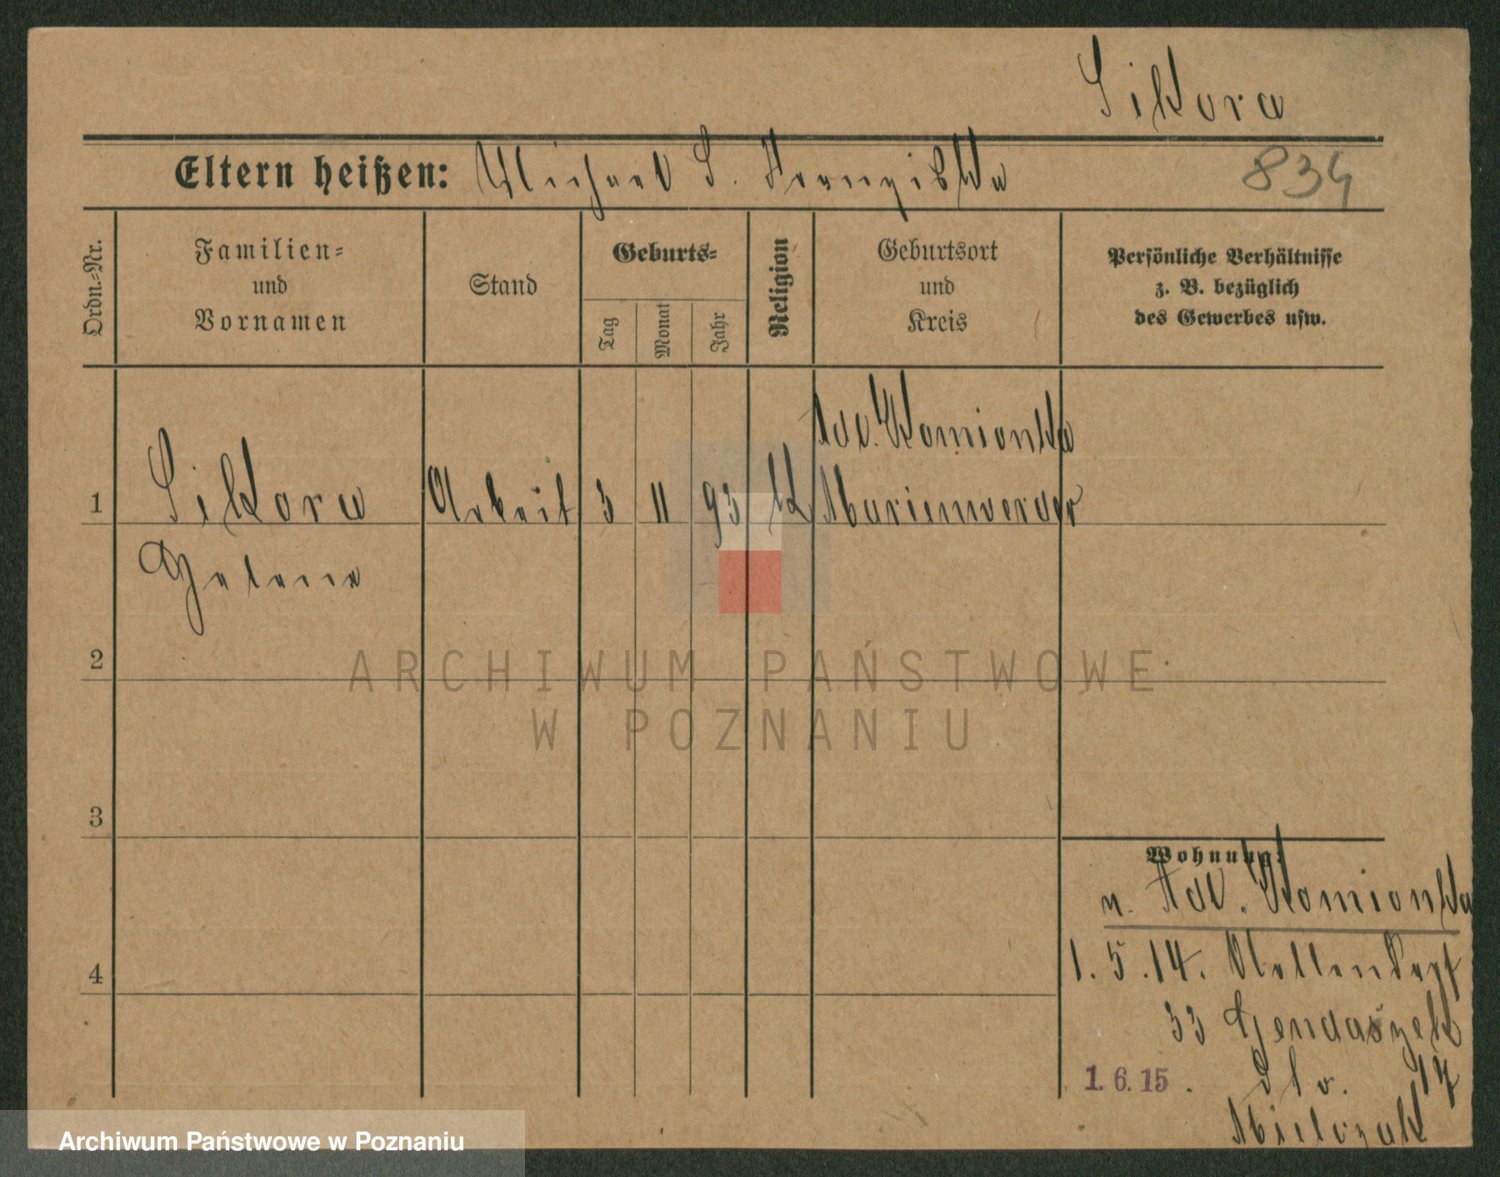 Sikora
Eltern heißen: Michael S. Franziska
834
Ordn.-Nr.
Familien-
und
Vornamen
Stand
Geburts-
Tag
Monat
Jahr
Religion
Geburtsort
und
Kreis
Persönliche Verhältnisse
z. B. bezüglich
des Gewerbes usw.
Adl. Kamionka
1 Sikora Arbeit 3 11 93 K Marienwerder
Helene
2
3
4
Wohnung:
n. Adl. Kamionka
1.5.14.
33 Gendaszek
1.6.15. 17
Mielczak
ARCHIWUM PAŃSTWOWE
W POZNANIU
Archiwum Państwowe w Poznaniu